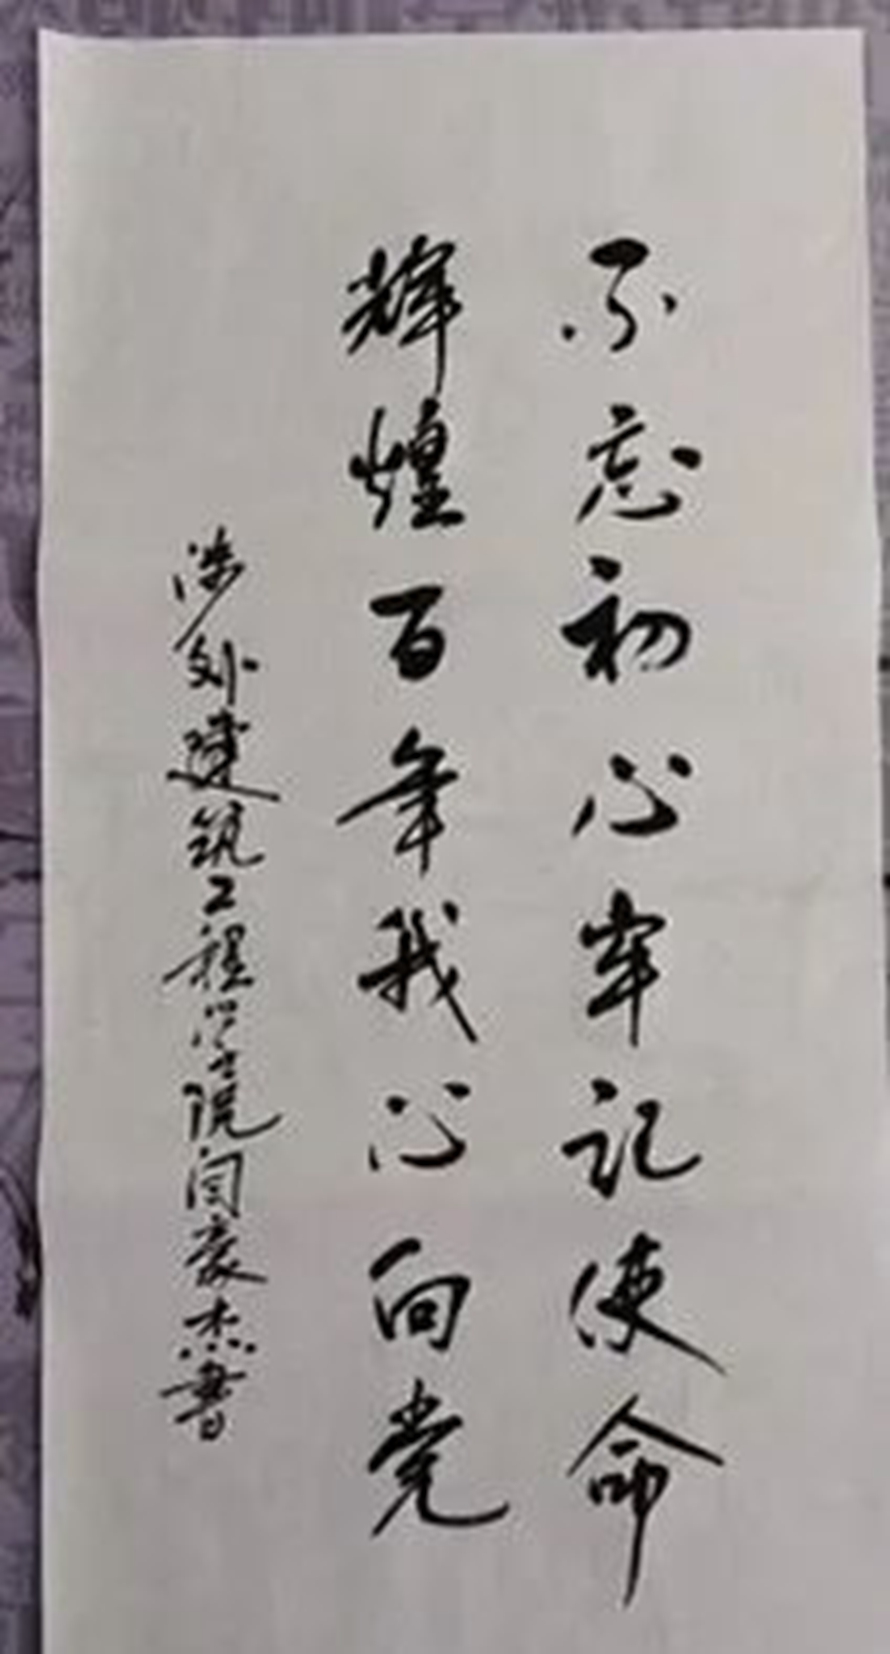 不忘初心牢记使命
辉煌百年我心向党
涉外建筑工程学院闫豪杰书